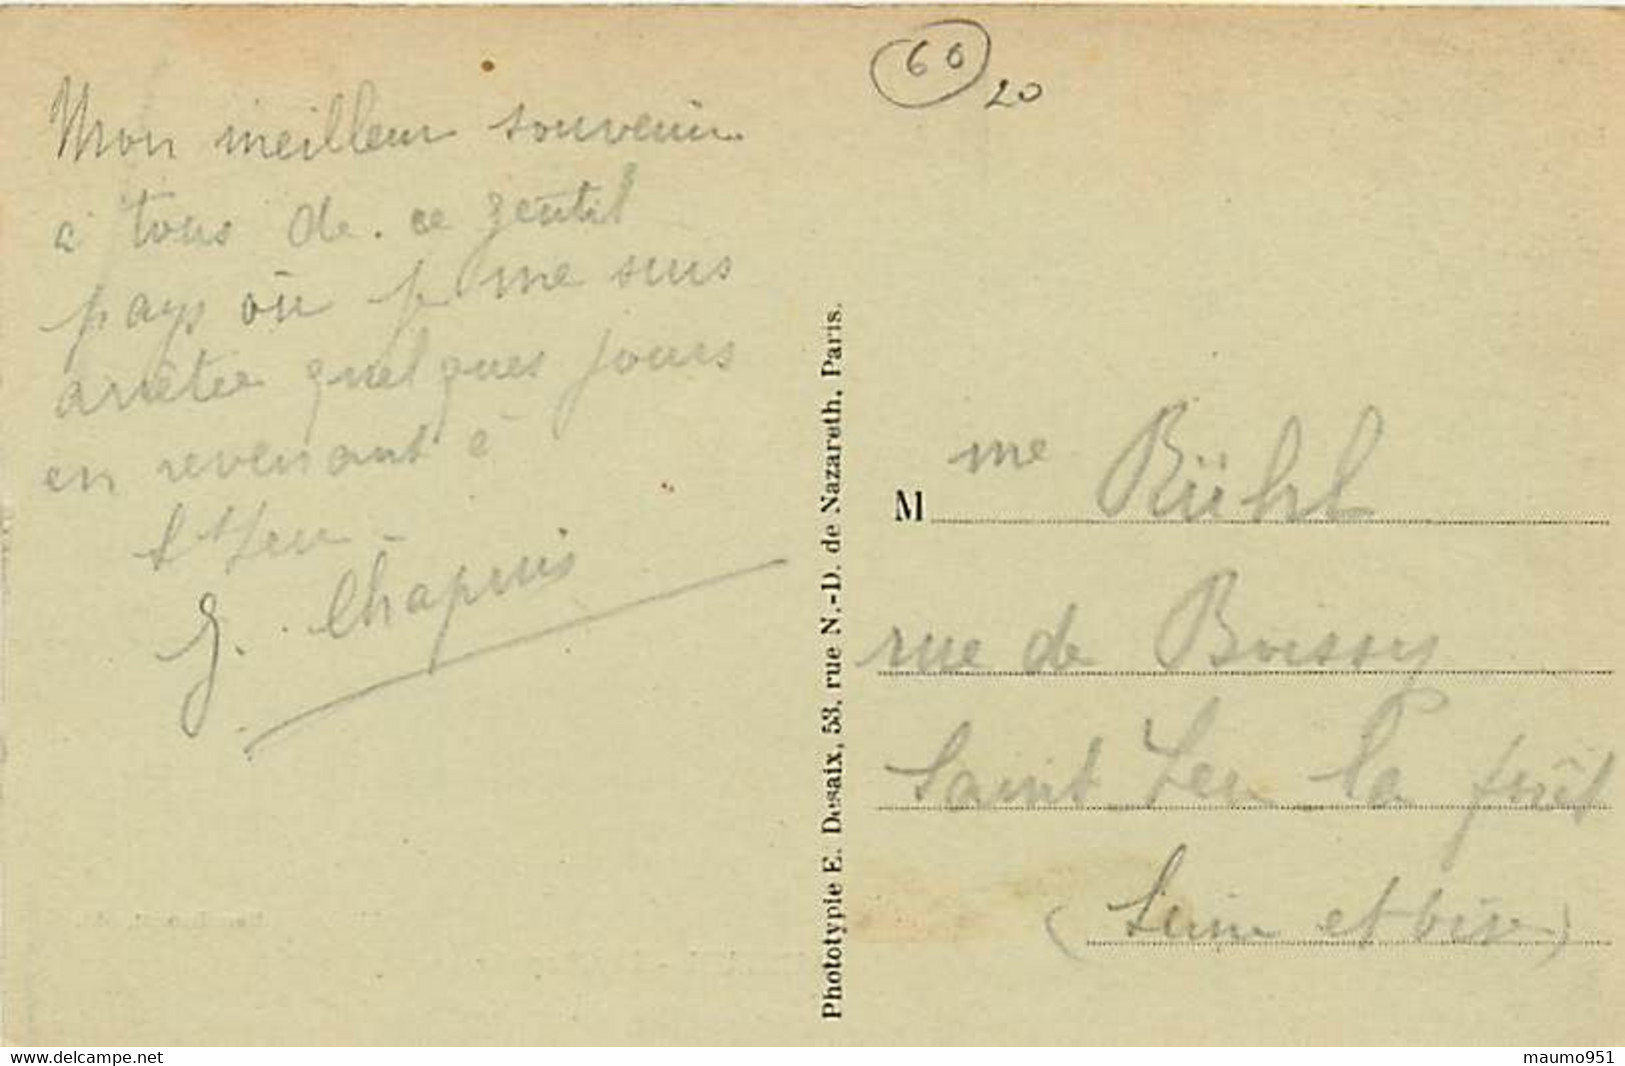 60
20
Mon meilleur souvenir
à tous de ce gentil
pays où je me suis
arrêtée quelques jours
en revenant à
St Leu -
G. Chapuis
Phototypie E. Desaix, 53, rue N.-D. de Nazareth, Paris.
Mme Rühl
rue de Boissy
Saint Leu la forêt
(Seine et Oise)
www.delcampe.net
maumo951